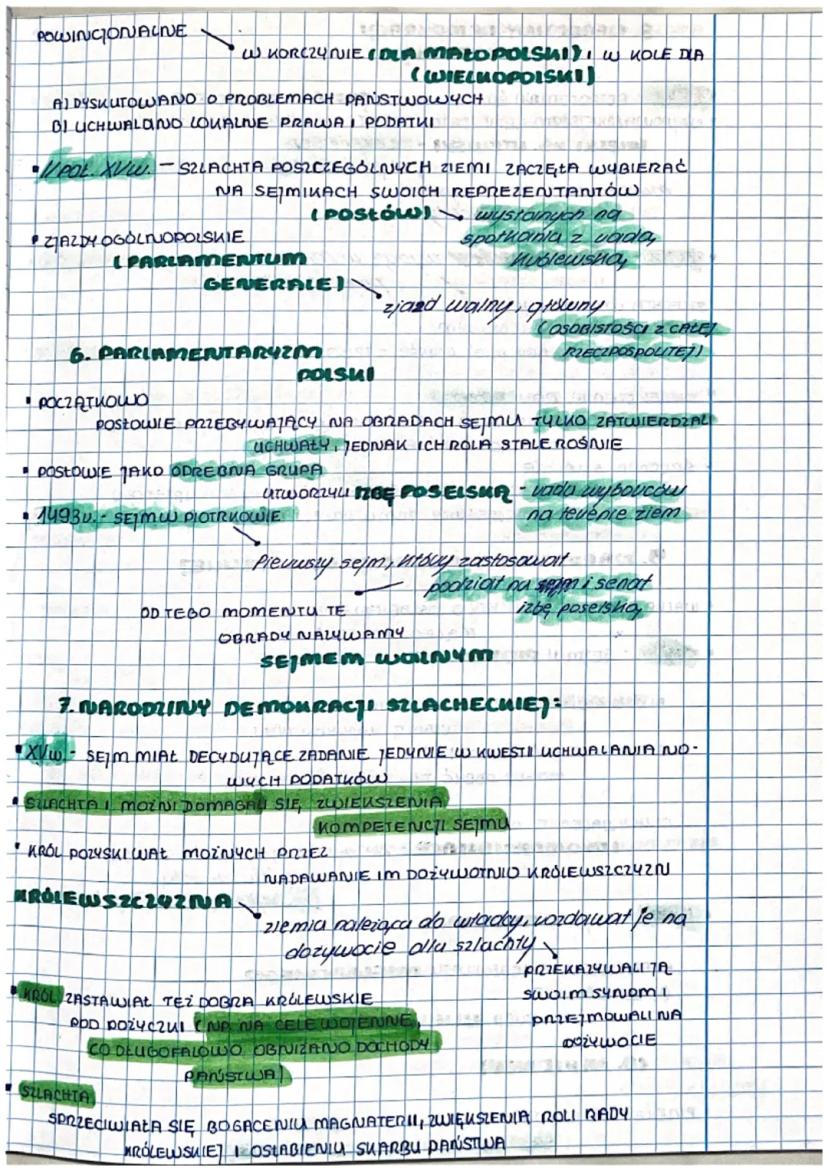 POWINCJONALNE
W KORCZYNIE (DLA MAŁOPOLSKI) I W KOLE DLA
(WIELKOPOLSKI)
A) DYSKUTOWANO O PROBLEMACH PAŃSTWOWYCH
B) UCHWALANO LOKALNE PRAWA I PODATKI
▪ II POŁ. XVw. – SZLACHTA POSZCZEGÓLNYCH ZIEMI ZACZĘŁA WYBIERAĆ
NA SEJMIKACH SWOICH REPREZENTANTÓW
(POSŁÓW) wysłalnych na
▪ ZJAZDY OGÓLNOPOLSKIE spotkania z radą
(PARLAMENTUM królewską
GENERALE)
zjazd walny, główny
(OSOBISTOŚCI Z CAŁEJ
RZECZPOSPOLITEJ)
6. PARLAMENTARYZM
POLSKI
▪ POCZĄTKOWO
POSŁOWIE PRZEBYWAJĄCY NA OBRADACH SEJMU TYLKO ZATWIERDZALI
UCHWAŁY, JEDNAK ICH ROLA STALE ROŚNIE
▪ POSŁOWIE JAKO ODRĘBNA GRUPA
UTWORZYLI IZBĘ POSELSKĄ - rada wyborców
▪ 1493r. - SEJM W PIOTRKOWIE na terenie ziem
Pierwszy sejm, który zastosował
podział na sejm i senat
izbę poselską
OD TEGO MOMENTU TE
OBRADY NAZYWAMY
SEJMEM WALNYM
7. NARODZINY DEMOKRACJI SZLACHECKIEJ:
▪ XVw. - SEJM MIAŁ DECYDUJĄCE ZADANIE JEDYNIE W KWESTII UCHWALANIA NO-
WYCH PODATKÓW
▪ SZLACHTA I MOŻNI DOMAGALI SIĘ ZWIĘKSZENIA
KOMPETENCJI SEJMU
▪ KRÓL POZYSKIWAŁ MOŻNYCH PRZEZ
NADAWANIE IM DOŻYWOTNIO KRÓLEWSZCZYZN
KRÓLEWSZCZYZNA
ziemia należąca do władcy, rozdawał je na
dożywocie dla szlachty
PRZEKAZYWALI JĄ
SWOIM SYNOM I
PRZEJMOWALI NA
DOŻYWOCIE
▪ KRÓL ZASTAWIAŁ TEŻ DOBRA KRÓLEWSKIE
POD POŻYCZKI (NP. NA CELE WOJENNE,
CO DŁUGOFALOWO OBNIŻANO DOCHODY
PAŃSTWA)
▪ SZLACHTA
SPRZECIWIAŁA SIĘ BOGACENIU MAGNATERII, ZWIĘKSZENIA ROLI RADY
KRÓLEWSKIEJ I OSŁABIENIU SKARBU PAŃSTWA